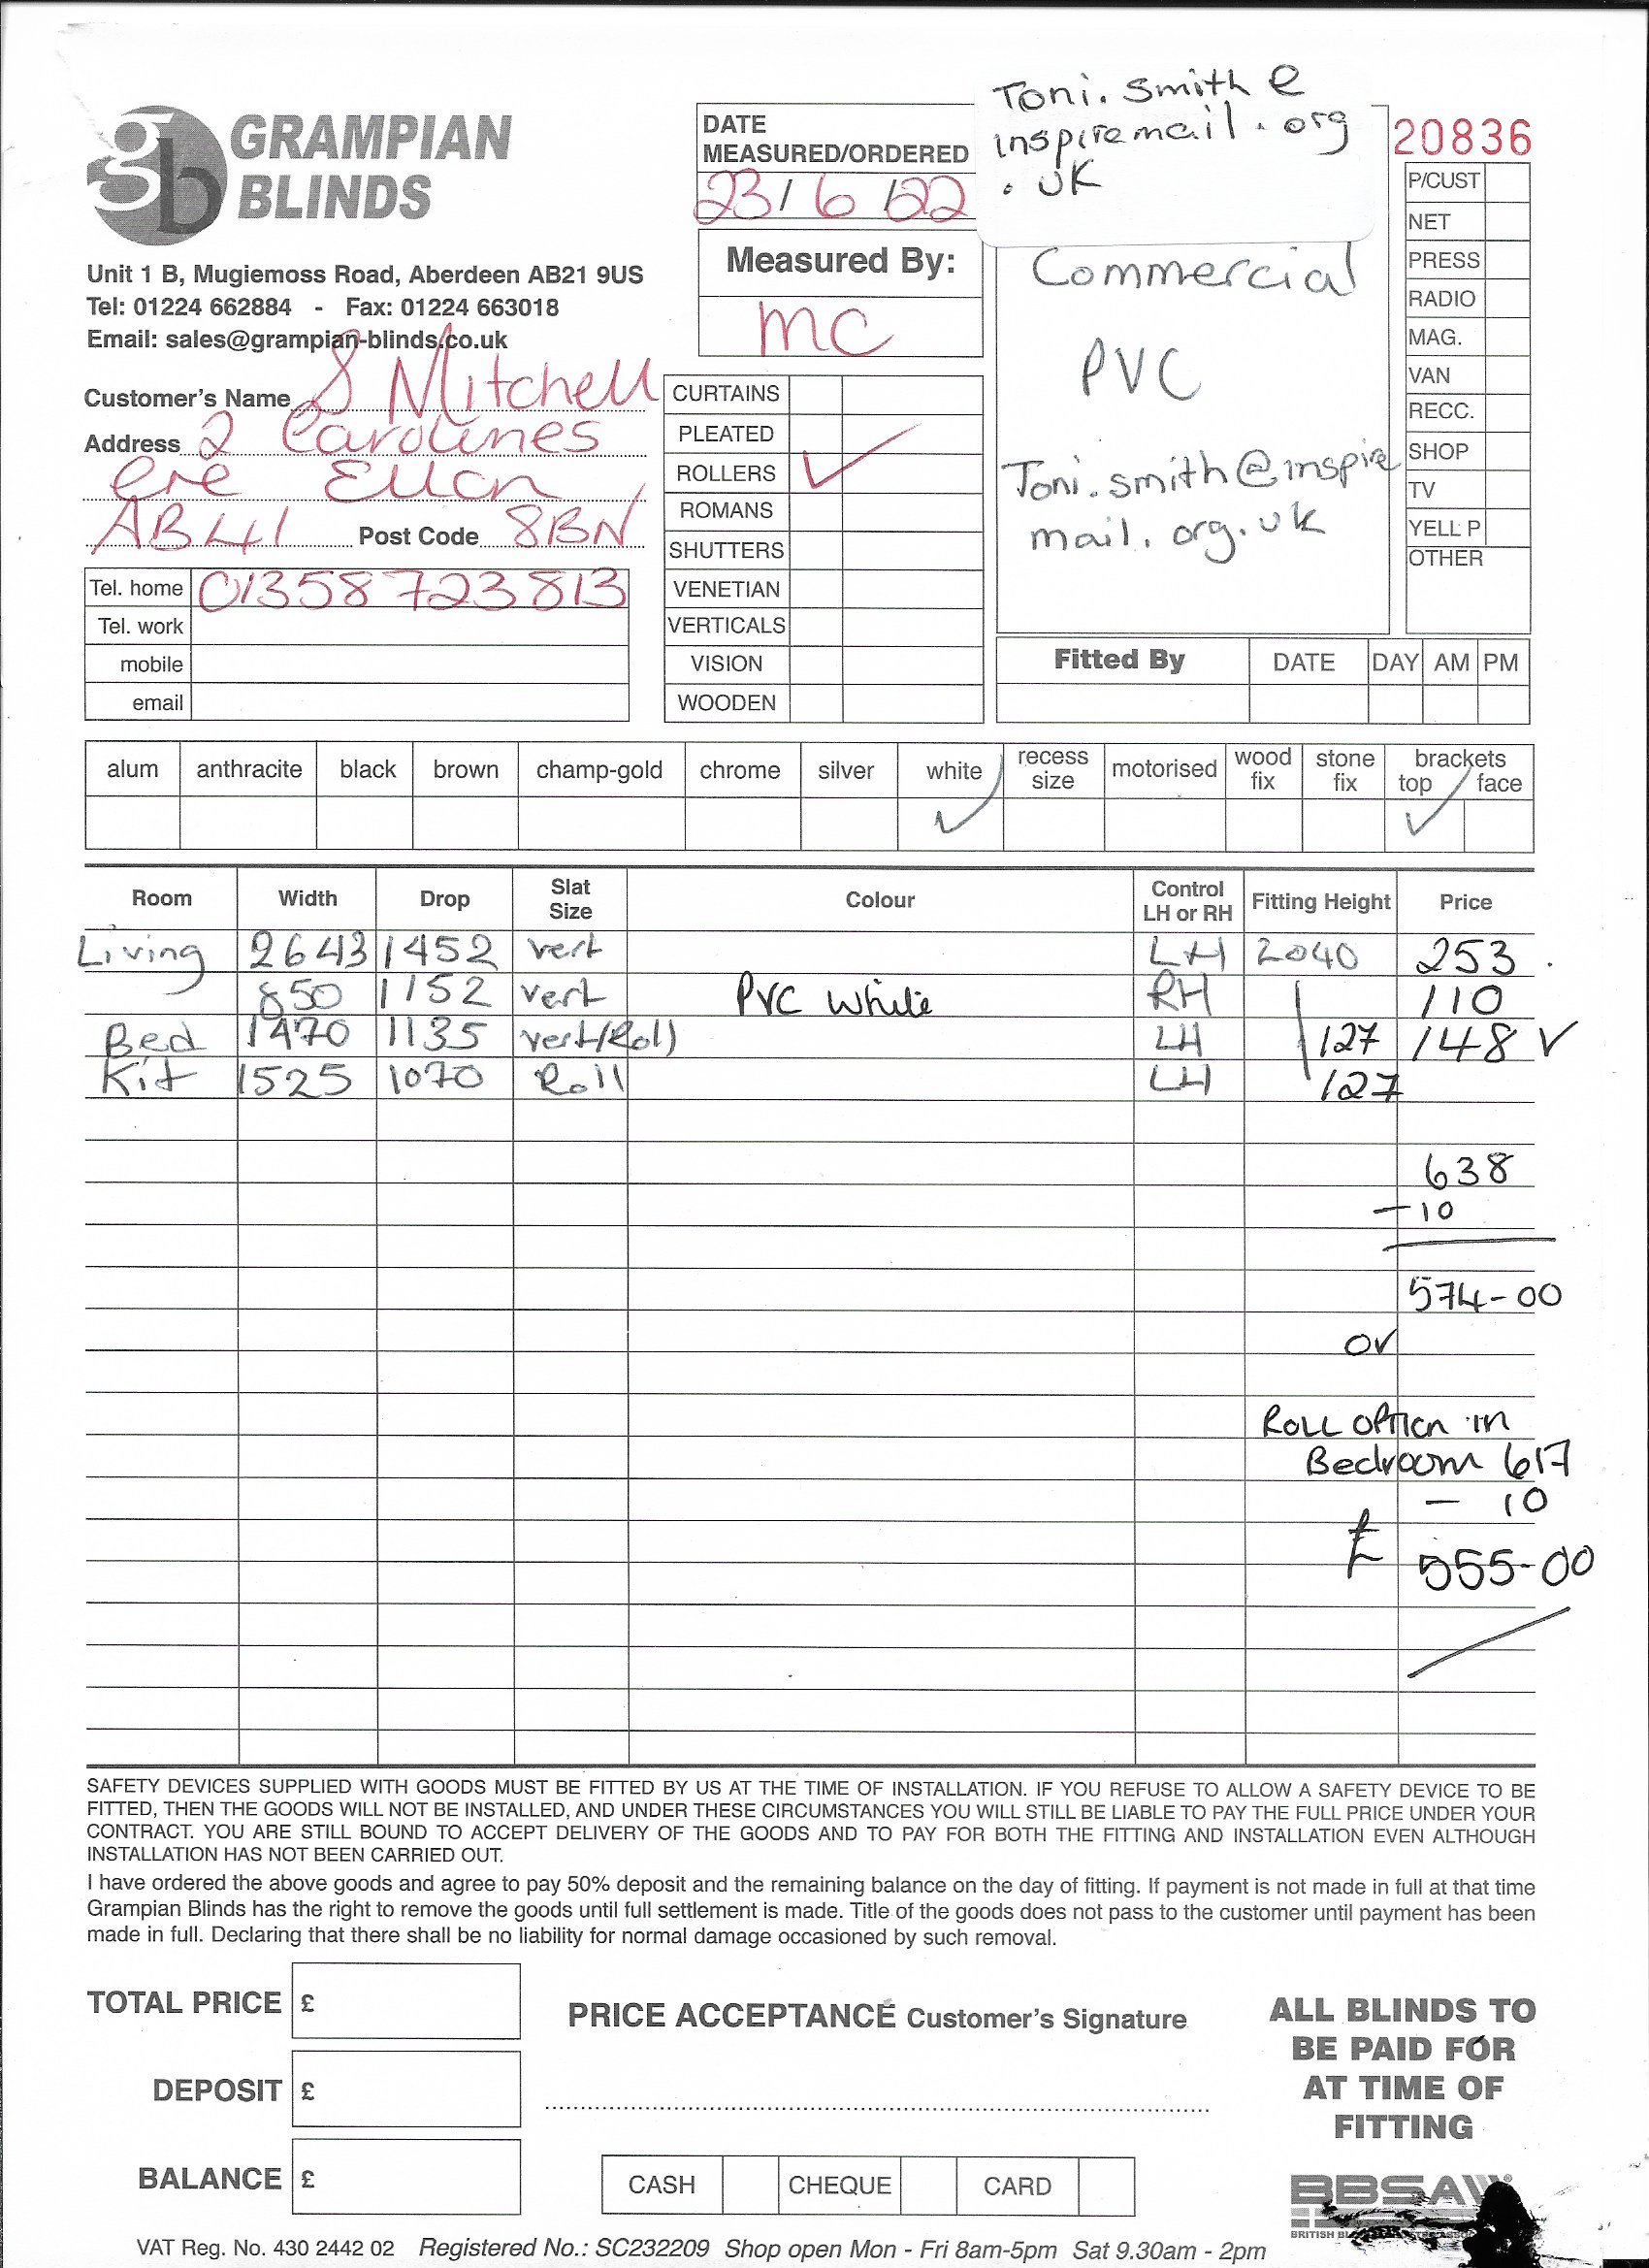 Toni. Smith @
inspiremail. org
. UK
GRAMPIAN
BLINDS
Unit 1 B, Mugiemoss Road, Aberdeen AB21 9US
Tel: 01224 662884 - Fax: 01224 663018
Email: sales@grampian-blinds.co.uk
DATE
MEASURED/ORDERED
23/ 6 /22
Measured By:
MC
20836
Commercial
PVC
Toni.smith@inspire
mail. org.uk
P/CUST
NET
PRESS
RADIO
MAG.
VAN
RECC.
SHOP
TV
YELL P
OTHER
Customer's Name S Mitchell
Address 2 Carolines
cre Ellon
AB41 Post Code 8BN
Tel. home 01358 723 813
Tel. work
mobile
email
CURTAINS
PLEATED
ROLLERS ✓
ROMANS
SHUTTERS
VENETIAN
VERTICALS
VISION
WOODEN
Fitted By DATE DAY AM PM
alum anthracite black brown champ-gold chrome silver white recess size motorised wood fix stone fix brackets top face
✓ ✓
Room Width Drop Slat Size Colour Control LH or RH Fitting Height Price
Living 2643 1452 vert LH 2040 253
850 1152 vert PVC White RH 110
Bed 1470 1135 vert(Roll) LH 127 148 ✓
Kit 1525 1070 Roll LH 127
638
-10
574-00
or
Roll option in
Bedroom 617
- 10
£ 555-00
SAFETY DEVICES SUPPLIED WITH GOODS MUST BE FITTED BY US AT THE TIME OF INSTALLATION. IF YOU REFUSE TO ALLOW A SAFETY DEVICE TO BE
FITTED, THEN THE GOODS WILL NOT BE INSTALLED, AND UNDER THESE CIRCUMSTANCES YOU WILL STILL BE LIABLE TO PAY THE FULL PRICE UNDER YOUR
CONTRACT. YOU ARE STILL BOUND TO ACCEPT DELIVERY OF THE GOODS AND TO PAY FOR BOTH THE FITTING AND INSTALLATION EVEN ALTHOUGH
INSTALLATION HAS NOT BEEN CARRIED OUT.
I have ordered the above goods and agree to pay 50% deposit and the remaining balance on the day of fitting. If payment is not made in full at that time
Grampian Blinds has the right to remove the goods until full settlement is made. Title of the goods does not pass to the customer until payment has been
made in full. Declaring that there shall be no liability for normal damage occasioned by such removal.
TOTAL PRICE £
DEPOSIT £
BALANCE £
PRICE ACCEPTANCE Customer's Signature
CASH CHEQUE CARD
ALL BLINDS TO
BE PAID FOR
AT TIME OF
FITTING
BBSA
BRITISH
VAT Reg. No. 430 2442 02 Registered No.: SC232209 Shop open Mon - Fri 8am-5pm Sat 9.30am - 2pm